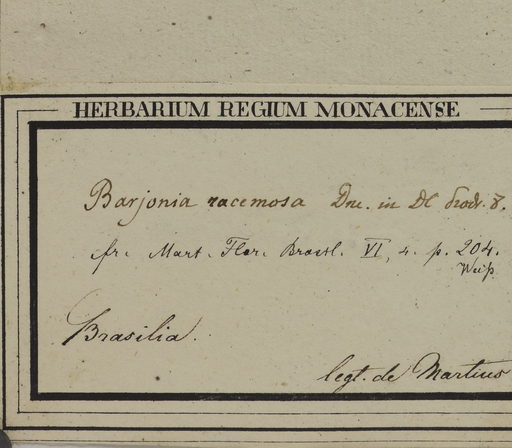 HERBARIUM REGIUM MONACENSE
Barjonia racemosa Dne. in DC Prodr. 8.
fr. Mart. Flor. Brasil. VI, 4. p. 204.
Brasilia.
legt. de Martius